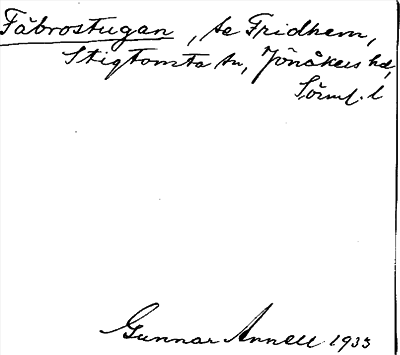 Fäbrostugan, se Fridhem,
Stigtomta sn, Jönåkers hd,
Sörml. l
Gunnar Annell 1933